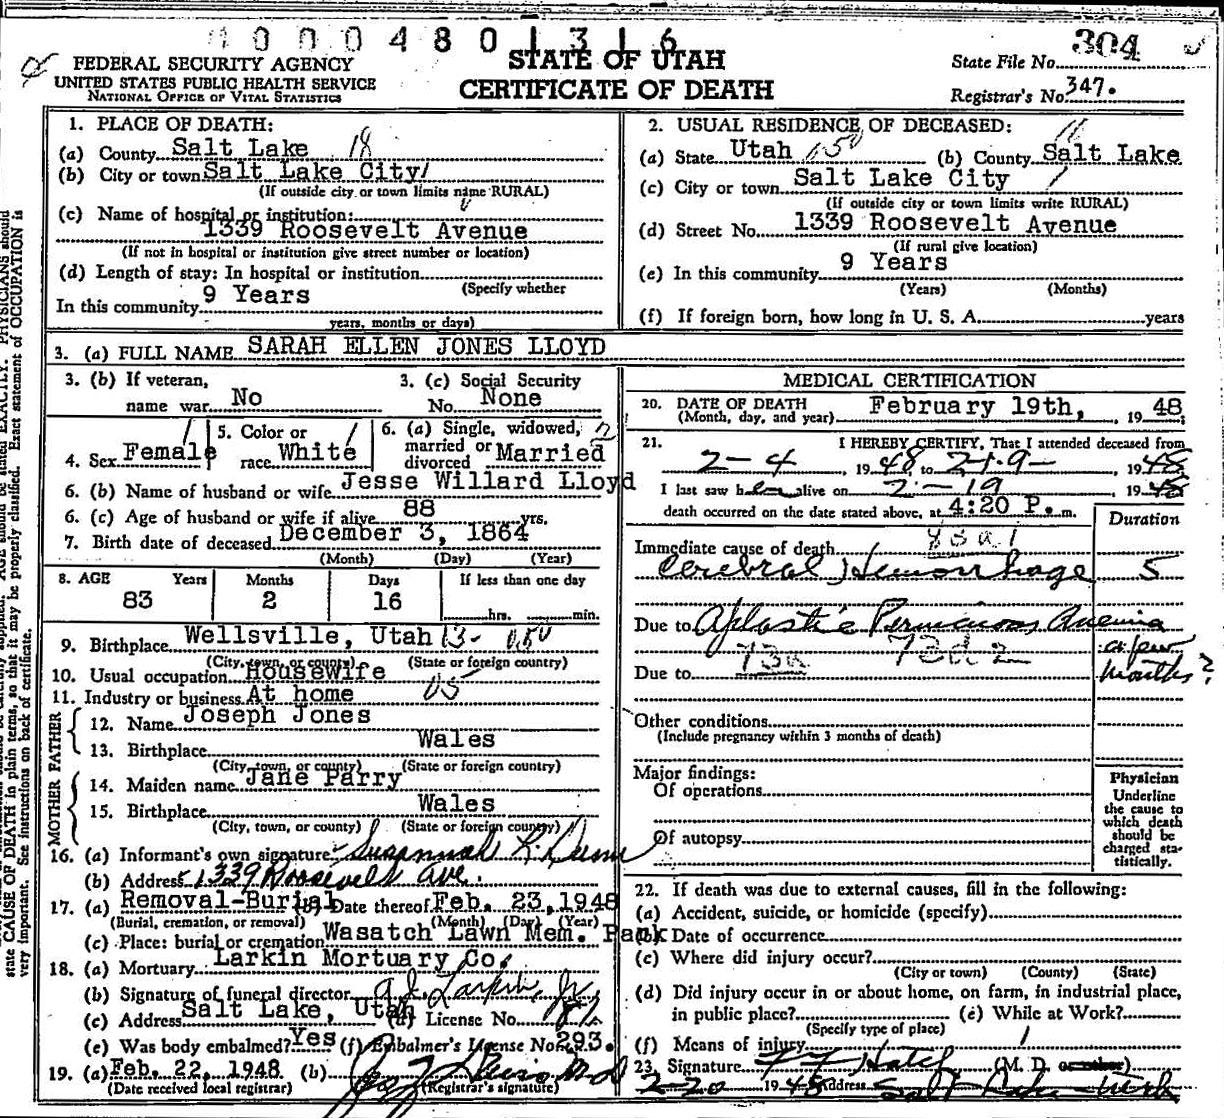 1 0 0 0 4 8 0 1 3 1 6
304
FEDERAL SECURITY AGENCY
UNITED STATES PUBLIC HEALTH SERVICE
NATIONAL OFFICE OF VITAL STATISTICS
STATE OF UTAH
CERTIFICATE OF DEATH
State File No.
Registrar's No. 347.
1. PLACE OF DEATH:
(a) County Salt Lake 18
(b) City or town Salt Lake City/
(If outside city or town limits name RURAL)
(c) Name of hospital or institution:
1339 Roosevelt Avenue
(If not in hospital or institution give street number or location)
(d) Length of stay: In hospital or institution
(Specify whether
In this community 9 Years
years, months or days)
2. USUAL RESIDENCE OF DECEASED:
(a) State Utah 050 (b) County Salt Lake
(c) City or town Salt Lake City
(If outside city or town limits write RURAL)
(d) Street No. 1339 Roosevelt Avenue
(If rural give location)
(e) In this community 9 Years
(Years) (Months)
(f) If foreign born, how long in U. S. A. years
3. (a) FULL NAME SARAH ELLEN JONES LLOYD
3. (b) If veteran,
name war No
3. (c) Social Security
No. None
4. Sex Female
5. Color or
race White
6. (a) Single, widowed,
married or
divorced Married
6. (b) Name of husband or wife Jesse Willard Lloyd
6. (c) Age of husband or wife if alive 88 yrs.
7. Birth date of deceased December 3, 1864
(Month) (Day) (Year)
8. AGE Years Months Days If less than one day
83 2 16 hrs. min.
9. Birthplace Wellsville, Utah 13- 050
(City, town, or county) (State or foreign country)
10. Usual occupation Housewife
11. Industry or business At home
FATHER
12. Name Joseph Jones
13. Birthplace Wales
(City, town, or county) (State or foreign country)
MOTHER
14. Maiden name Jane Parry
15. Birthplace Wales
(City, town, or county) (State or foreign country)
16. (a) Informant's own signature Susannah R.
(b) Address 1339 Roosevelt Ave.
17. (a) Removal-Burial (b) Date thereof Feb. 23, 1948
(Burial, cremation, or removal) (Month) (Day) (Year)
(c) Place: burial or cremation Wasatch Lawn Mem. Park
18. (a) Mortuary Larkin Mortuary Co.
(b) Signature of funeral director A.J. Larkin, Jr.
(c) Address Salt Lake, Utah (d) License No.
(e) Was body embalmed? Yes (f) Embalmer's License No. 293.
19. (a) Feb. 22, 1948 (b)
(Date received local registrar) (Registrar's signature)
MEDICAL CERTIFICATION
20. DATE OF DEATH February 19th, 1948
(Month, day, and year)
21. I HEREBY CERTIFY, That I attended deceased from
2-4, 1948, to 2-19-, 1948
I last saw her alive on 2-19, 1948
death occurred on the date stated above, at 4:20 P. m.
Duration
83a1
Immediate cause of death
Cerebral Hemorrhage 5
Due to Aplastic Pernicious Anemia
a few
months?
73a 73d2
Due to
Other conditions
(Include pregnancy within 3 months of death)
Major findings:
Of operations
Of autopsy
Physician
Underline
the cause to
which death
should be
charged sta-
tistically.
22. If death was due to external causes, fill in the following:
(a) Accident, suicide, or homicide (specify)
(b) Date of occurrence
(c) Where did injury occur?
(City or town) (County) (State)
(d) Did injury occur in or about home, on farm, in industrial place,
in public place? (e) While at Work?
(Specify type of place)
(f) Means of injury
23. Signature Hatch (M. D. or other)
2-20 1948 Address Salt Lake
state CAUSE OF DEATH in plain terms, so that it may be properly classified. Exact statement of OCCUPATION is
very important. See instructions on back of certificate.
AGE should be stated EXACTLY. PHYSICIANS should